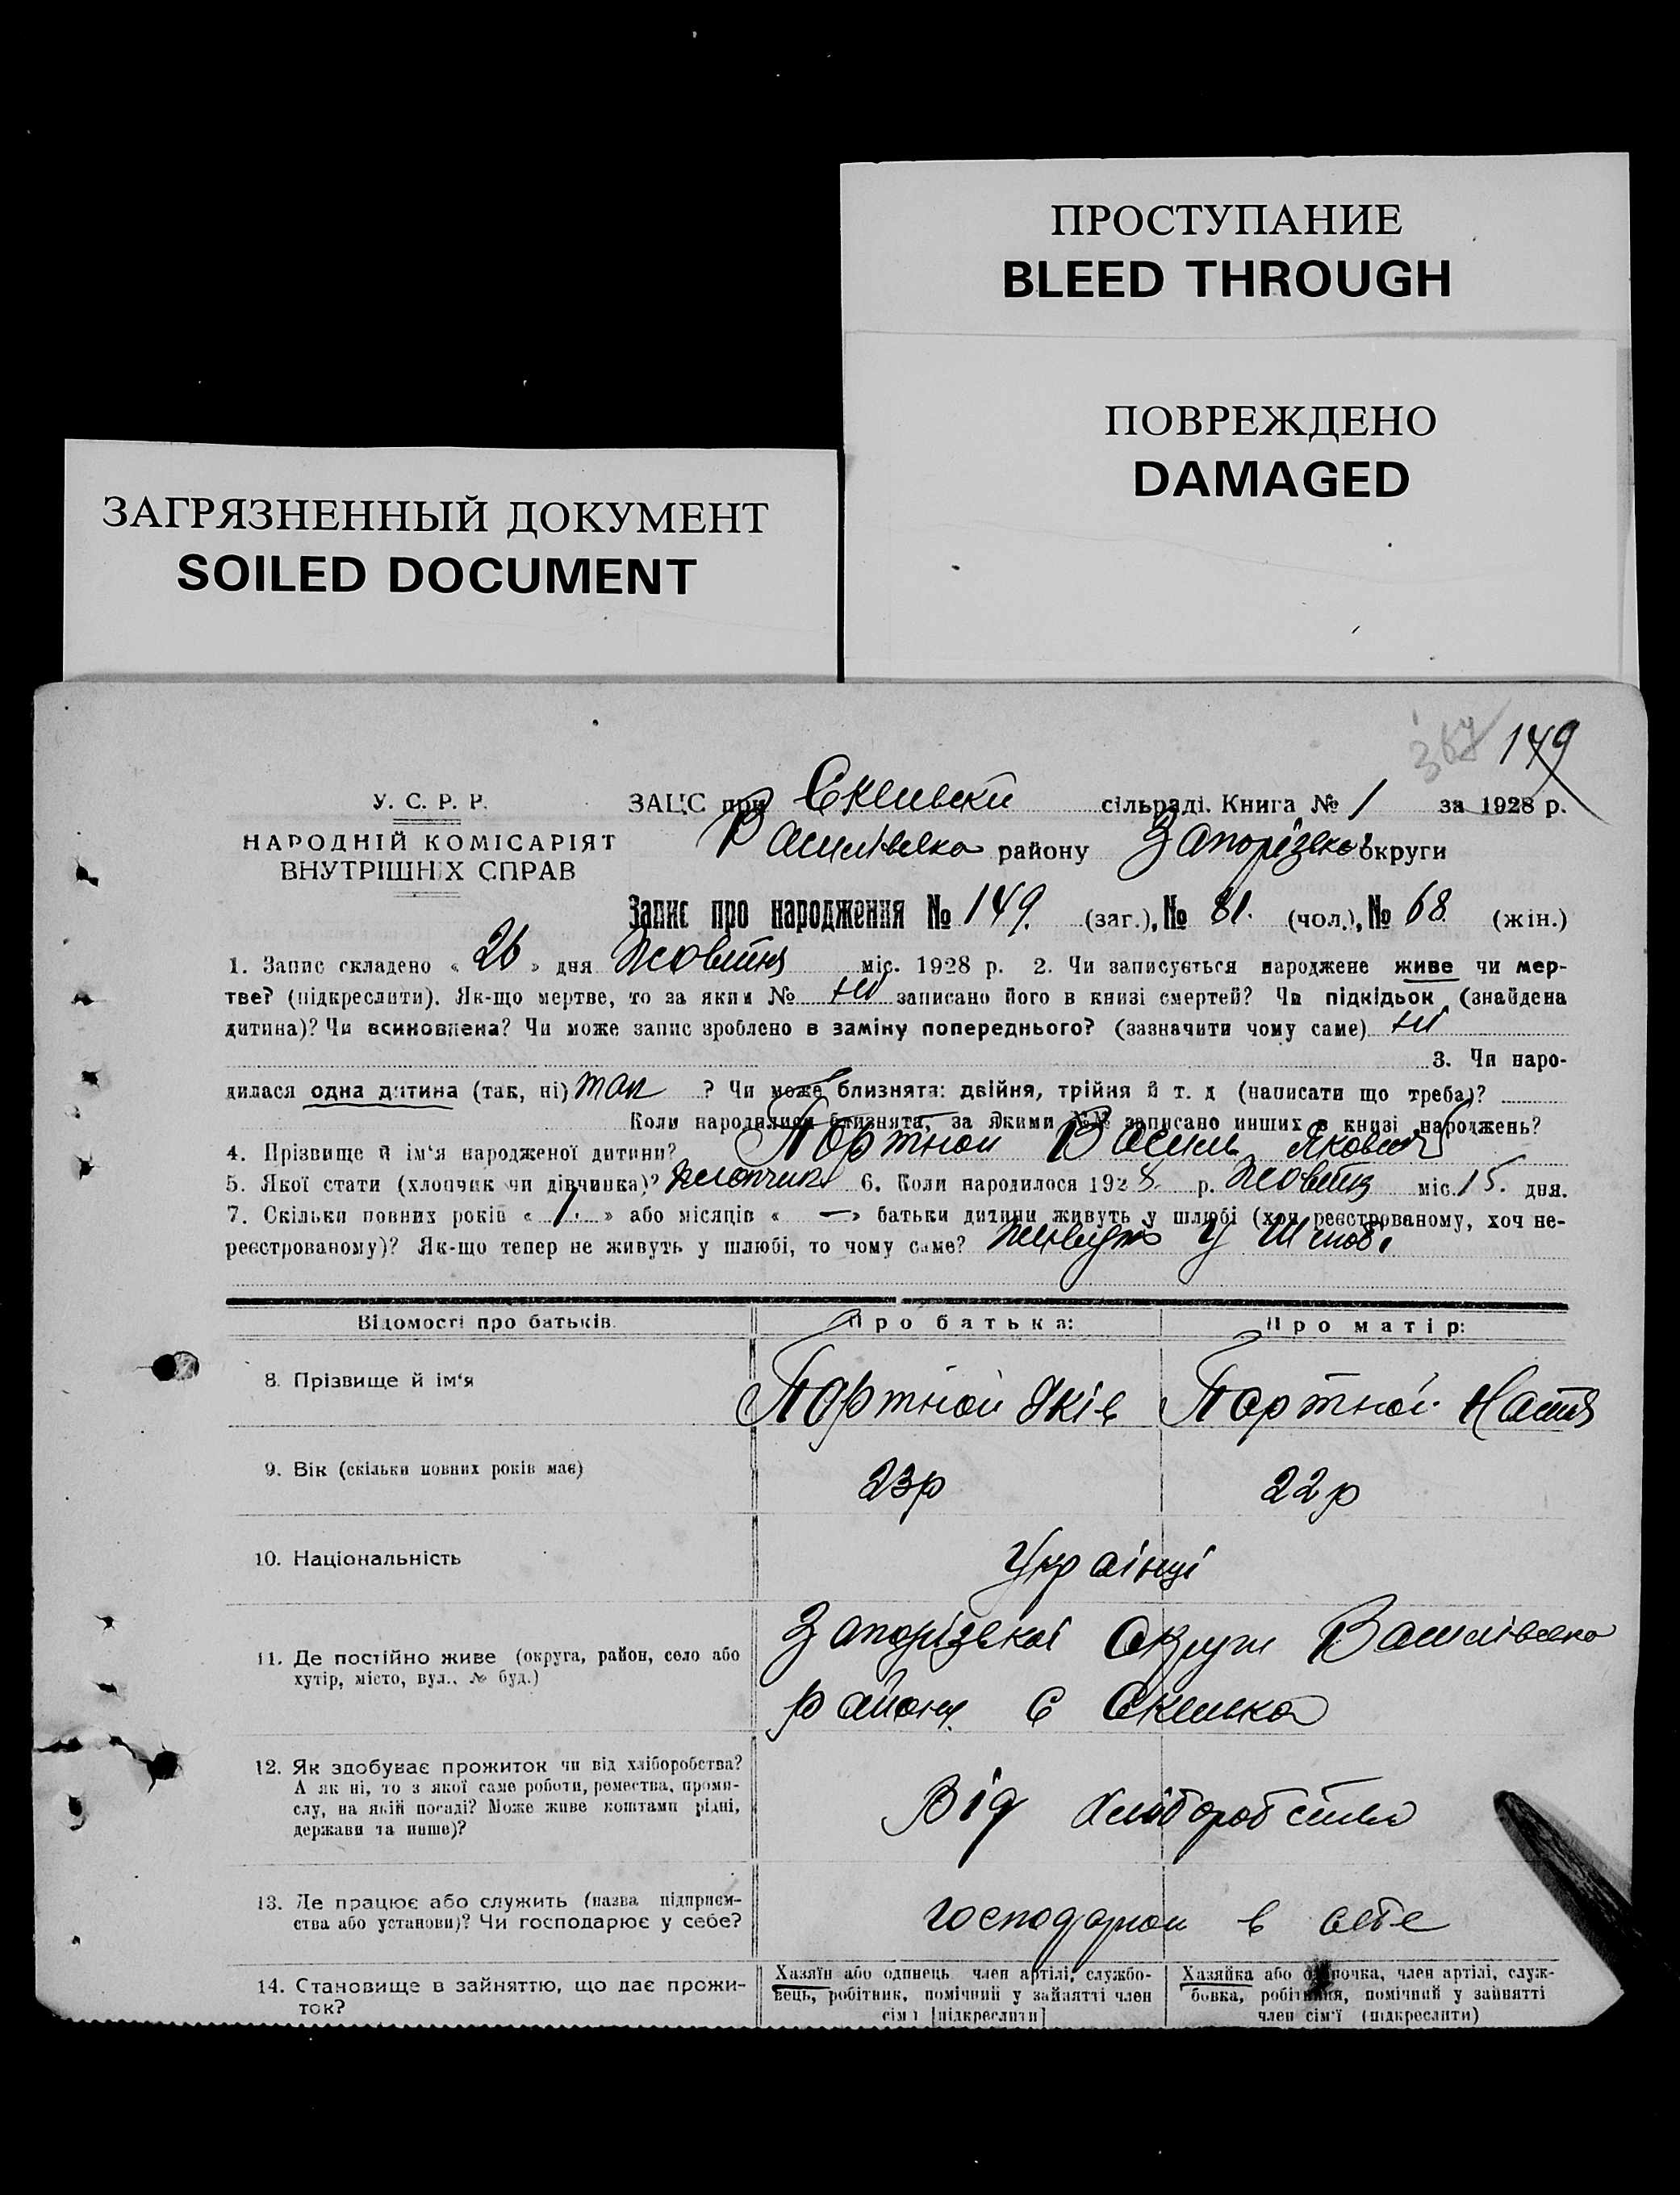 ПРОСТУПАНИЕ
BLEED THROUGH
ПОВРЕЖДЕНО
DAMAGED
ЗАГРЯЗНЕННЫЙ ДОКУМЕНТ
SOILED DOCUMENT
367 149
У. С. Р. Р.
НАРОДНІЙ КОМІСАРІЯТ
ВНУТРІШНІХ СПРАВ
ЗАЦС при Скельскій сільраді. Книга № 1 за 1928 р.
Василівсько району Запорізько округи
Запис про народження № 149. (заг.), № 81. (чол.), № 68. (жін.)
1. Запис складено « 26 » дня Жовтня міс. 1928 р. 2. Чи записується народжене живе чи мер-
тве? (підкреслити). Як-що мертве, то за яким № ні записано його в книзі смертей? Чи підкідьок (знайдена
дитина)? Чи всиновлена? Чи може запис зроблено в заміну попереднього? (зазначити чому саме) ні
3. Чи наро-
дилася одна дитина (так, ні) так ? Чи може близнята: двійня, трійня й т. д (написати що треба)?
Коли народилися близнята, за якими №№ записано инших в книзі народжень?
4. Прізвище й ім'я народженої дитини? Портной Василь Якович
5. Якої стати (хлопчик чи дівчинка)? Хлопчик 6. Коли народилося 1928 р. Жовтня міс. 15. дня.
7. Скільки повних років « 1. » або місяців « — » батьки дитини живуть у шлюбі (хоч реєстрованому, хоч не-
реєстрованому)? Як-що тепер не живуть у шлюбі, то чому саме? живуть у шлюбі
Відомості про батьків. Про батька: Про матір:
8. Прізвище й ім'я Портной Яків Портної Настя
9. Вік (скільки повних років має) 23р 22р
10. Національність Українці
11. Де постійно живе (округа, район, село або
хутір, місто, вул., № буд.)
Запорізької Округи Василівсько
району С Скелька
12. Як здобуває прожиток чи від хліборобства?
А як ні, то з якої саме роботи, ремества, проми-
слу, на якій посаді? Може живе коштами рідні,
держави та инше)?
Від Хліборобства
13. Де працює або служить (назва підприєм-
ства або установи)? Чи господарює у себе?
господарюи в себе
14. Становище в зайняттю, що дає прожи-
ток?
Хазяїн або одинець член артілі, службо-
вець, робітник, помічний у зайнятті член
сім'ї [підкреслити]
Хазяйка або одиночка, член артілі, служ-
бовка, робітниця, помічний у зайнятті
член сім'ї (підкреслити)